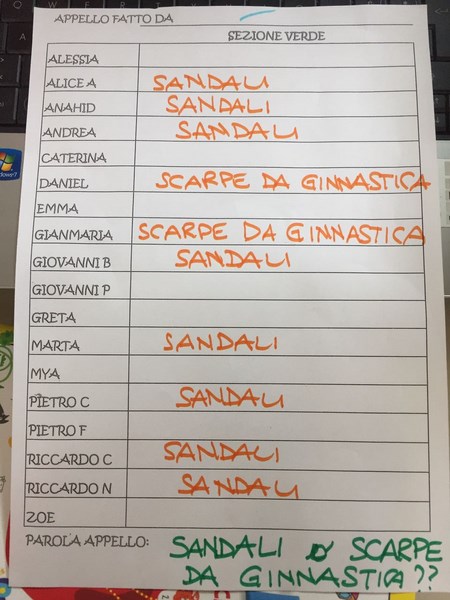 APPELLO FATTO DA
SEZIONE VERDE
ALESSIA
ALICE A SANDALI
ANAHID SANDALI
ANDREA SANDALI
CATERINA
DANIEL SCARPE DA GINNASTICA
EMMA
GIANMARIA SCARPE DA GINNASTICA
GIOVANNI B SANDALI
GIOVANNI P
GRETA
MARTA SANDALI
MYA
PIETRO C SANDALI
PIETRO F
RICCARDO C SANDALI
RICCARDO N SANDALI
ZOE
PAROLA APPELLO: SANDALI O SCARPE
DA GINNASTICA??